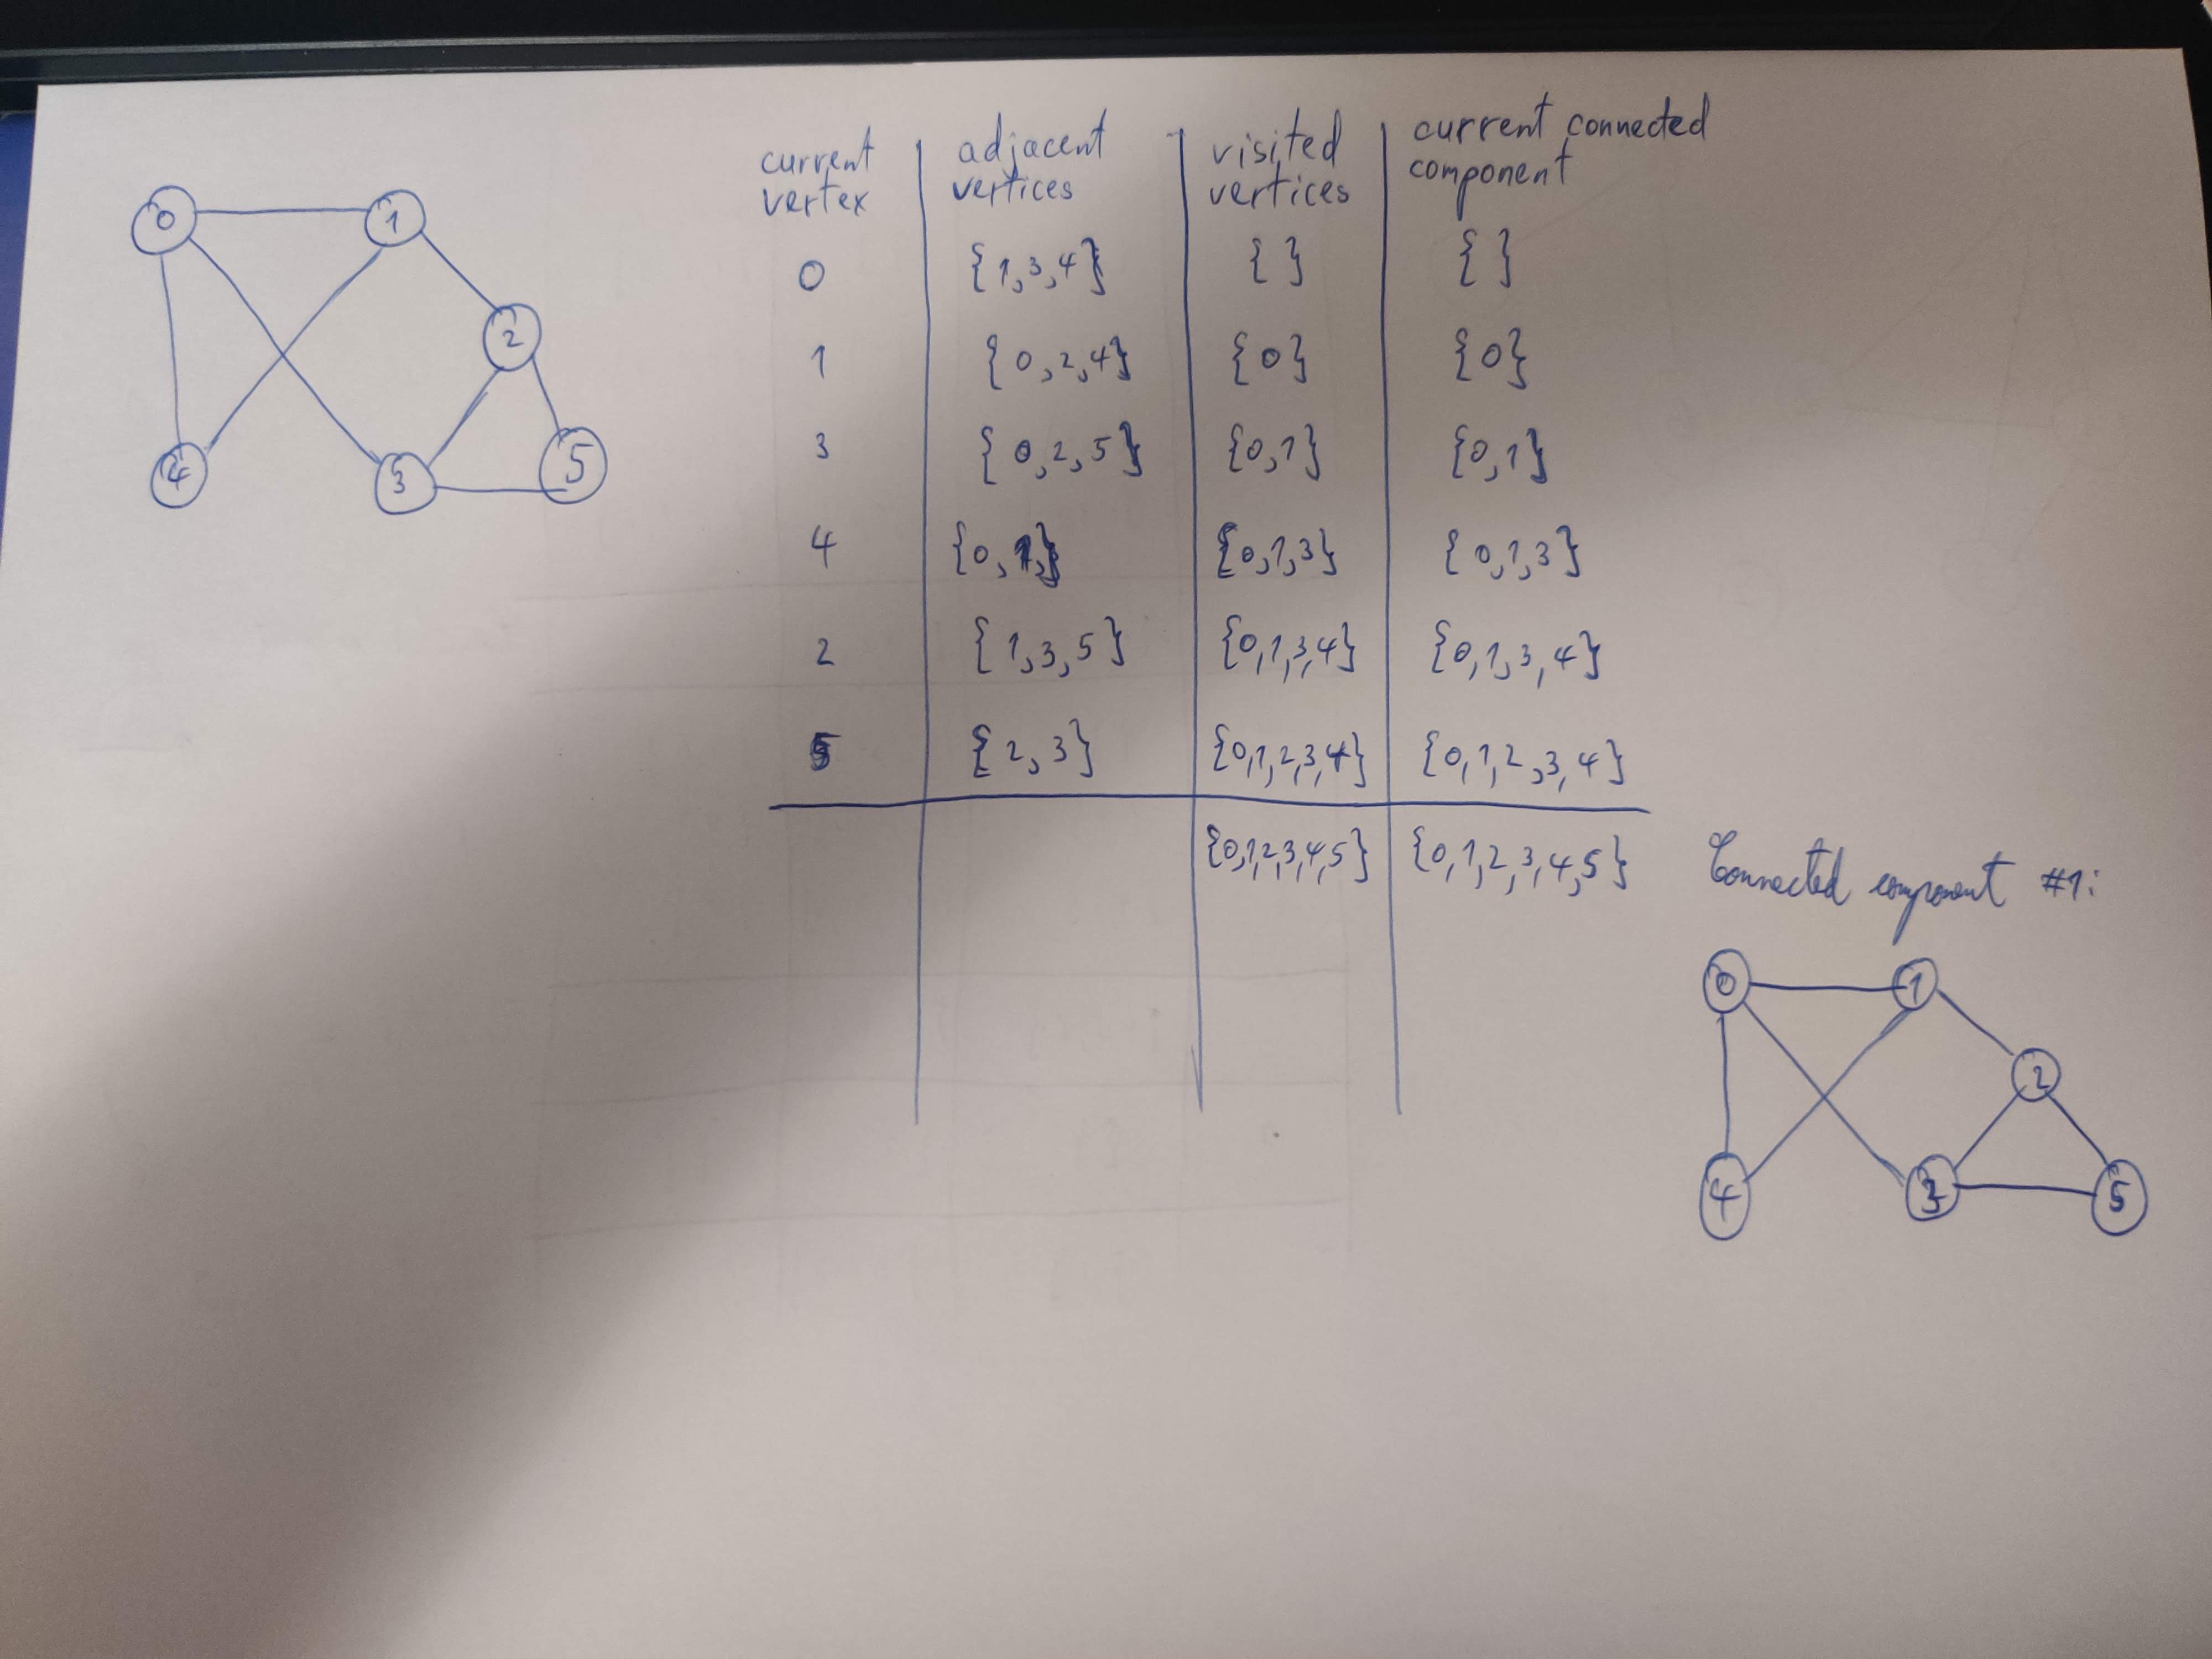 0
1
4
3
2
5
current vertex | adjacent vertices | visited vertices | current connected component
0 {1,3,4} { } { }
1 {0,2,4} {0} {0}
3 {0,2,5} {0,1} {0,1}
4 {0,1} {0,1,3} {0,1,3}
2 {1,3,5} {0,1,3,4} {0,1,3,4}
5 {2,3} {0,1,2,3,4} {0,1,2,3,4}
{0,1,2,3,4,5} {0,1,2,3,4,5}
Connected component #1:
0
1
4
3
2
5